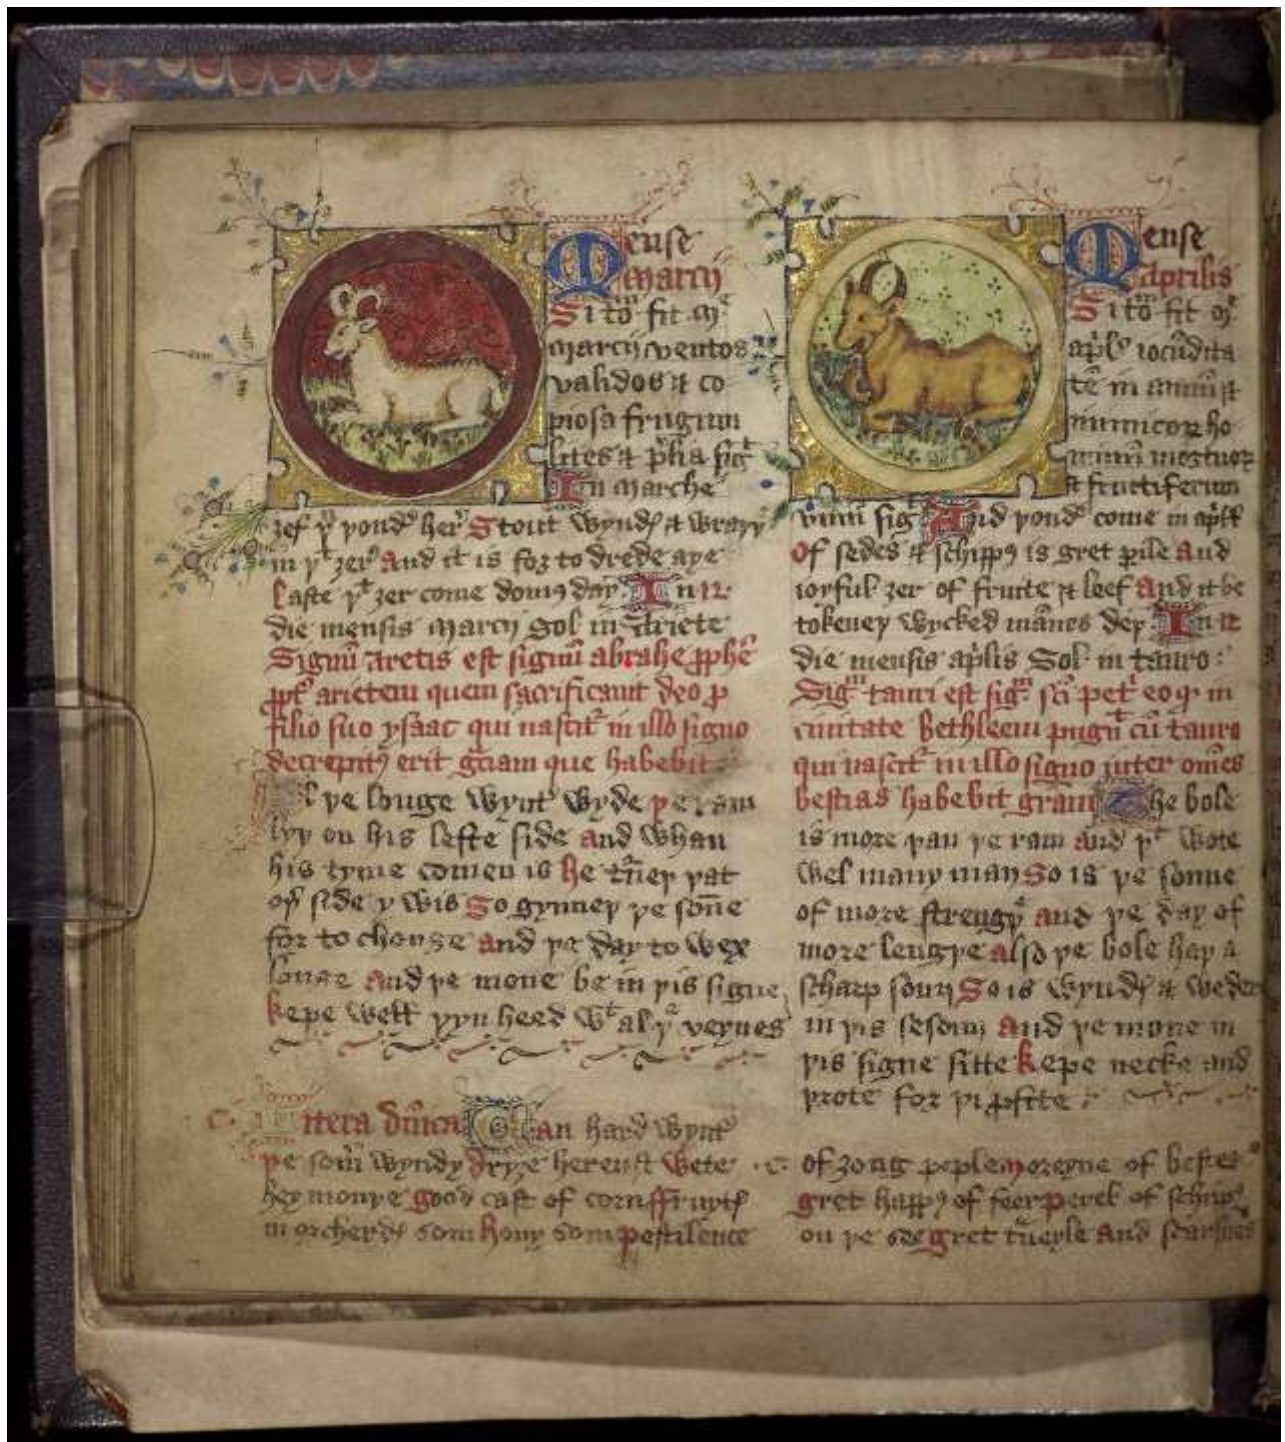 Mense
Marcij
Si toñ fit in
marcij ventos
validos & co
piosa frugium
lites & p̄lia sig̃
In marche
ȝef þͬ þond͛ her͛ Stout wynd & wrayþ
in þͭ ȝer And it is for to drede aye
laste þͭ ȝer come domꝰ day In 12
die mensis marcij Sol in Ariete
Signū Aretis est signū abrahe ꝓphē
ꝓpt͛ arietem quem sacrificauit deo ꝓ
filio suo ysaac qui nascit͛ in illo signo
decrepitꝰ erit gr̄iam que habebit
Al þe longe wynt͛ wyde þe ram
lyþ on his lefte side And whan
his tyme comen is he t̃neþ þat
oþ͛ side y wis So gynneþ þe son̄e
for to chonge And þe day to wex
longe And þe mone be in þis signe
kepe well þyn heed wͭ al þͤ veynes
Mense
Aprilis
Si toñ fit in
ap̄l iocūdita
tē in animū &
inimicorꝝ ho
minū mortuoꝝ
& fructiferum
vinū sig̃ And þond͛ come in ap̄ll
Of sedes & schippꝰ is gret ꝑile And
ioyful ȝer of fruite & leef And it be
tokeneþ wycked mānes deþ In 12
die mensis ap̄lis Sol in tauro:
Sigᵐ tauri est sigᵐ sc̄i pet͛ eo ꝙ in
ciuitate bethleem pugn̄ͭ cū tauro
qui nascit͛ in illo signo inter om̄es
bestias habebit gr̄am The bole
is more þan þe ram And þͭ wote
wel many man So is þe sonne
of more strengþ͛ And þe day of
more lengþe also þe bole haþ a
scharp soun So is wynd & weder
in þis sesoun And þe mone in
þis signe sitte kepe necke and
þrote for þi ꝓfite
C. Litera dn̄ica C An hard wynt͛
þe som̄ wyndy drye heruest wete
hey monþe good cast of corn ffruyt
in orcherd som hony som pestilence
of ȝong peple moreyne of bestes
gret happꝰ of feer perel of schipꝰ
on þe see gret t̃ueyle And scarsnes